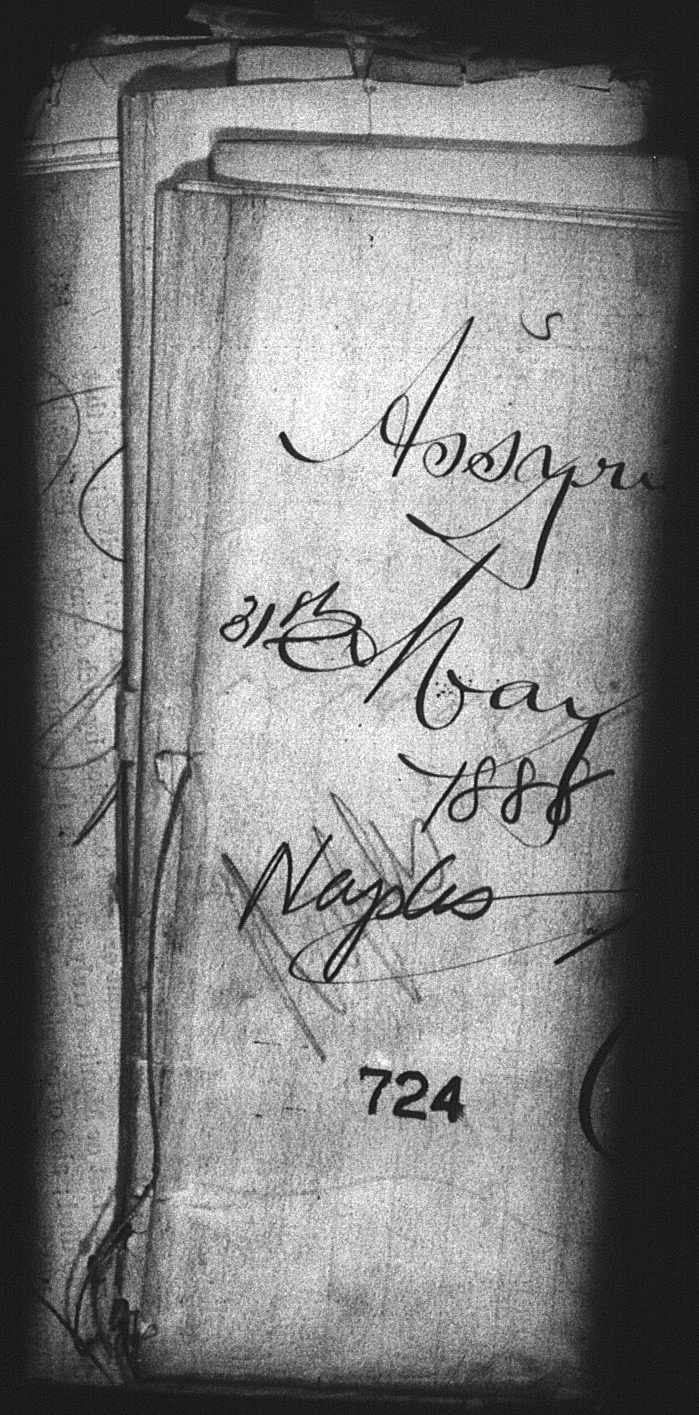 S
Assyri
31st May
1888
Naples
724